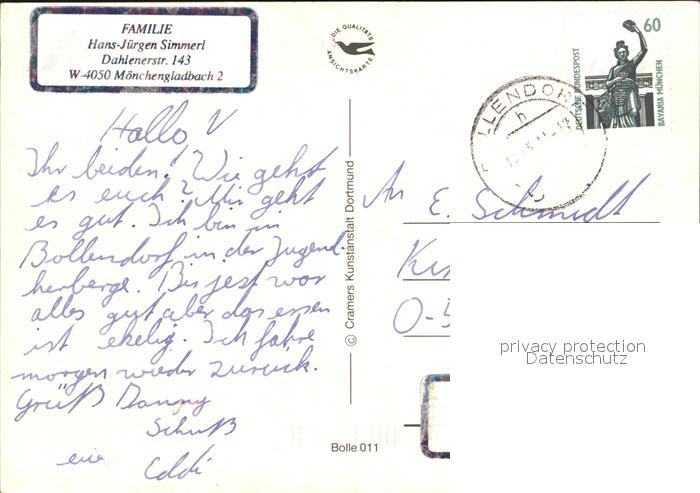 FAMILIE
Hans-Jürgen Simmerl
Dahlenerstr. 143
W-4050 Mönchengladbach 2
DIE QUALITÄTS
ANSICHTSKARTE
60
DEUTSCHE BUNDESPOST
BAVARIA MÜNCHEN
LLENDOR
h
Hallo
Ihr beiden! Wie geht
es euch? Mir geht
es gut. Ich bin in
Bollendorf in der Jugend
herberge. Bis jest war
alles gut aber das essen
ist ekelig. Ich fahre
morgen wieder zurück.
Grüß Danny
Schuß
euer Eddi
© Cramers Kunstanstalt Dortmund
An E. Schmidt
O-5
privacy protection
Datenschutz
Bolle 011